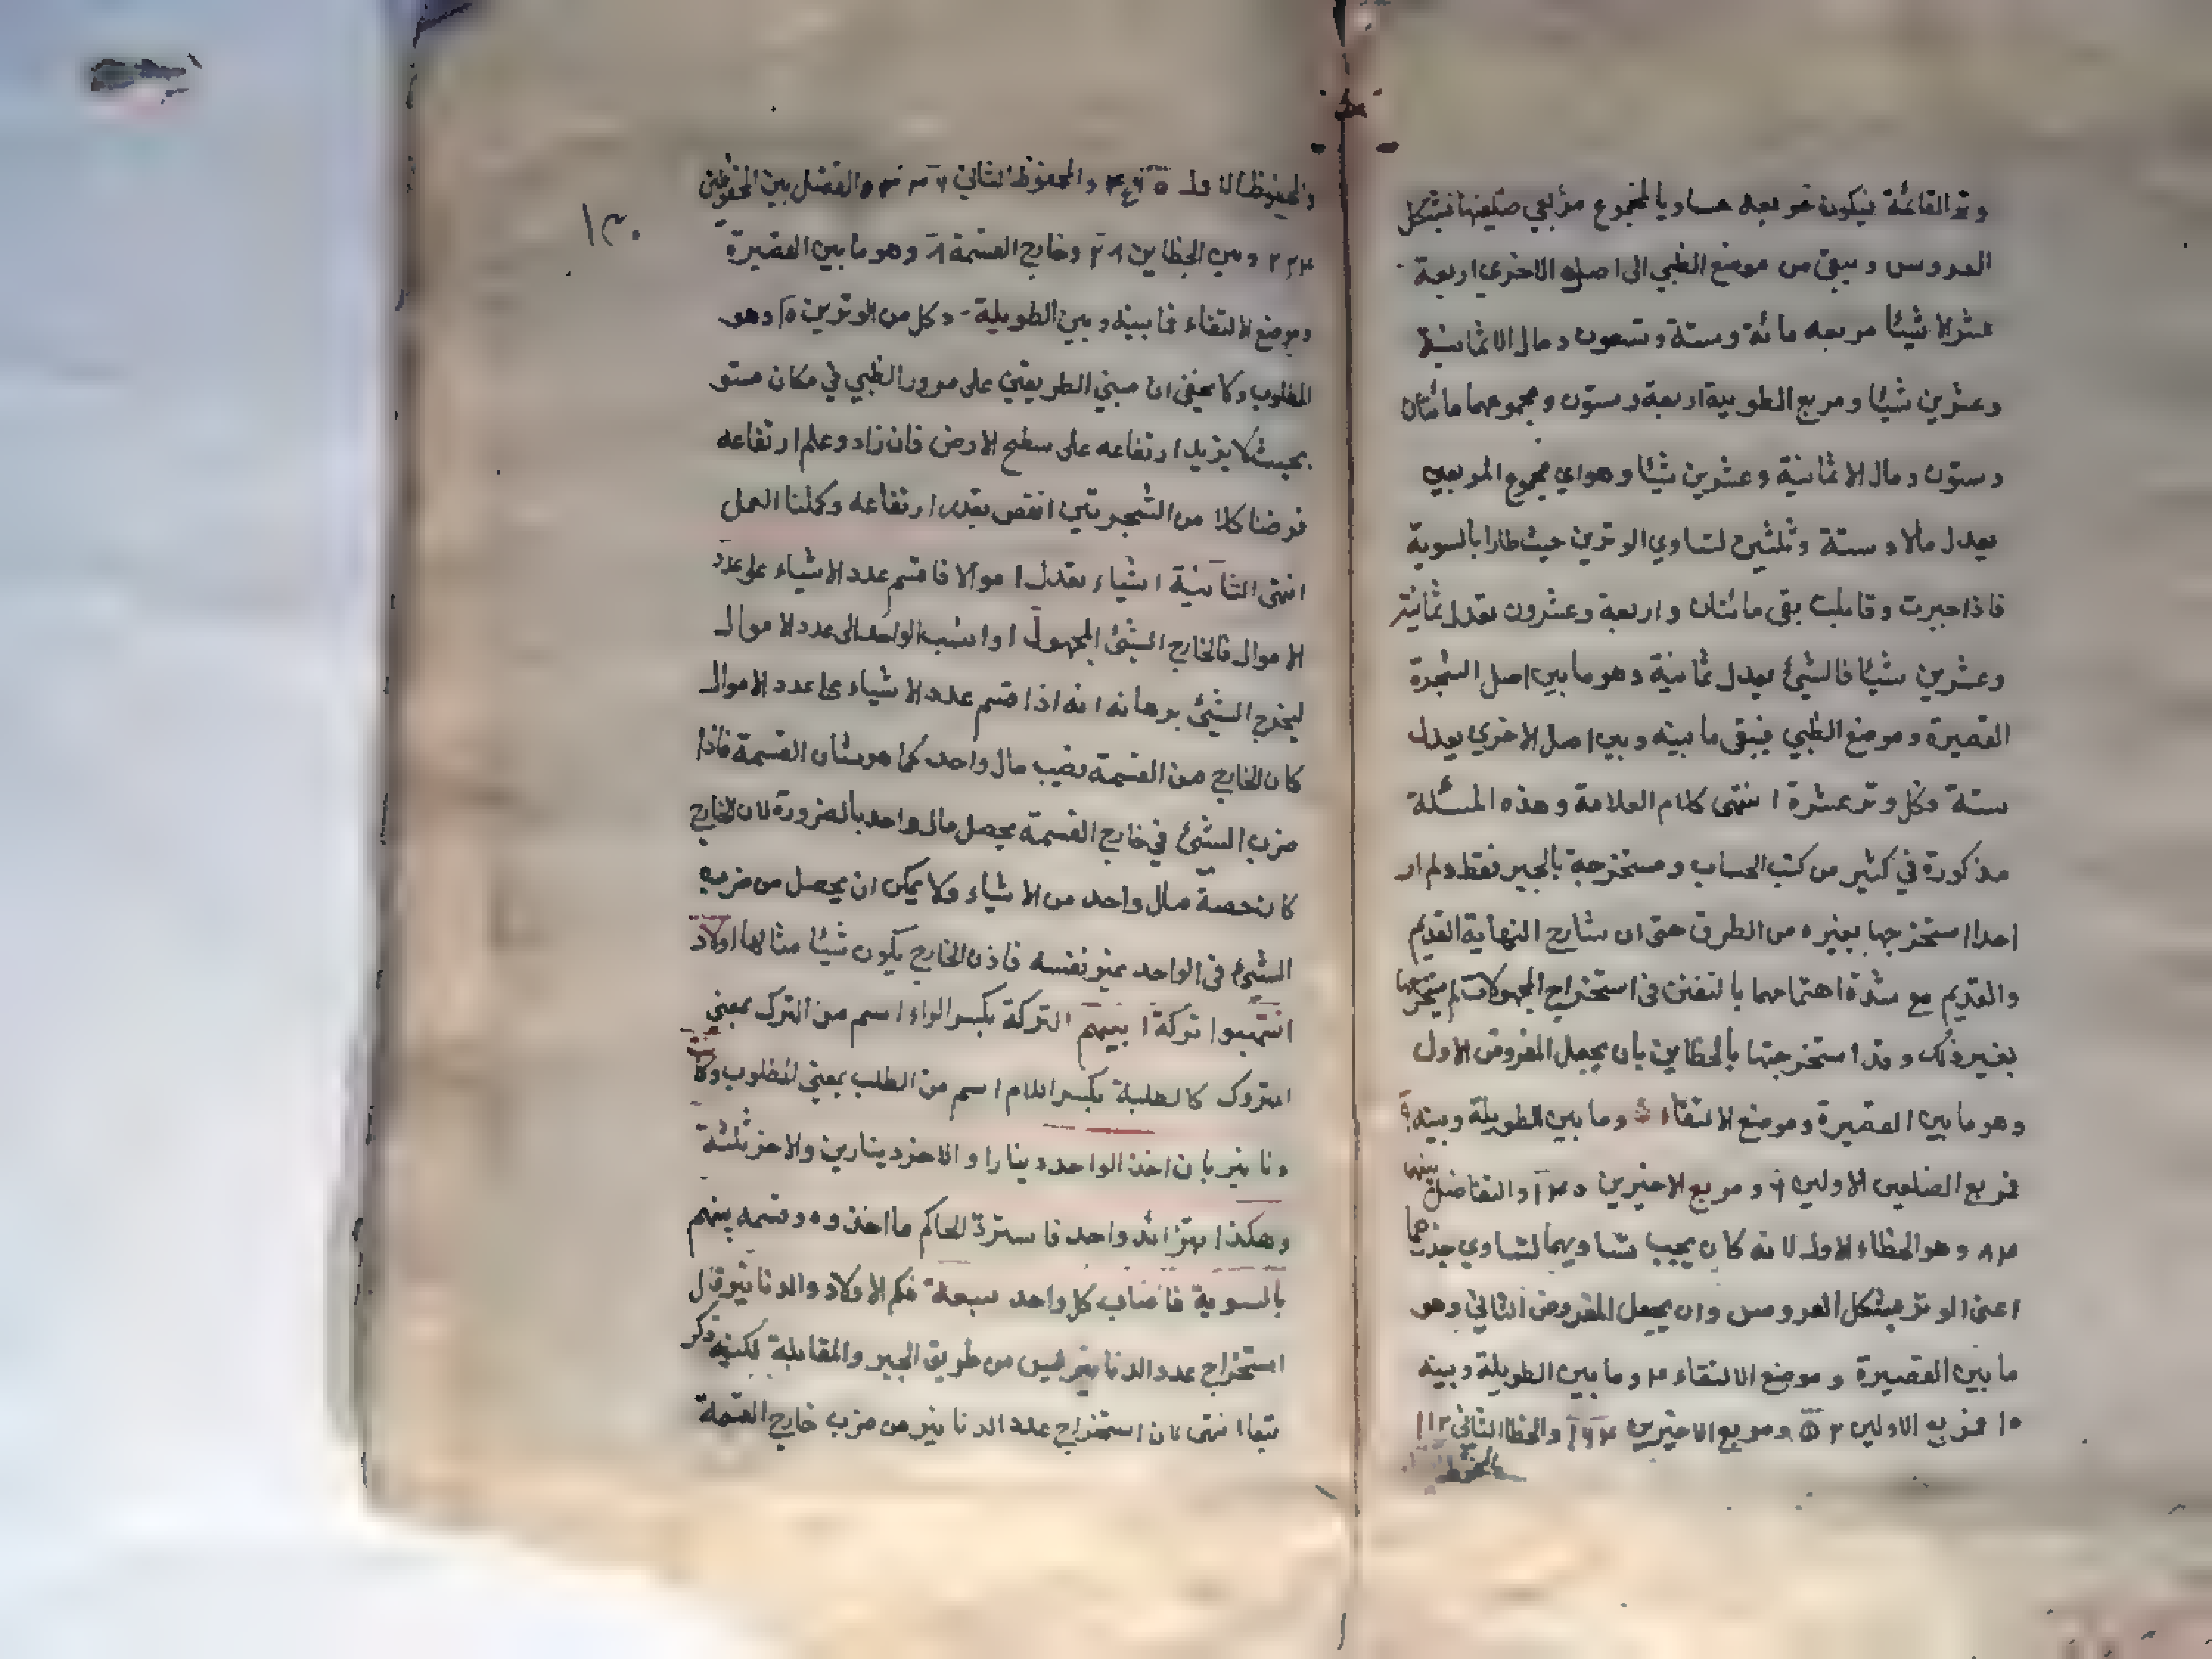 وتر القائمة فيكون مربعه مساويا لمجموع مربعي ضلعيها بشكل
العروس ويبقى من موضع الظبي الى اصل الاخرى اربعة
عشر الا شيئا مربعه مائة وستة وتسعون ومال الا ثمانية
وعشرين شيئا ومربع الطويلة اربعة وستون ومجموعهما مائتان
وستون ومال الا ثمانية وعشرين شيئا وهو اي مجموع المربعين
يعدل مالا وستة وثلثين لتساوي الوترين حيث طارا بالسوية
فاذا جبرت وقابلت بقى مائتان واربعة وعشرون يعدل ثمانية
وعشرين شيئا فالشئ يعدل ثمانية وهو ما بين اصل الشجرة
القصيرة وموضع الظبي فيبقى ما بينه وبين اصل الاخرى يعدل
ستة وكل وتر عشرة انتهى كلام العلامة وهذه المسئلة
مذكورة في كثير من كتب الحساب ومستخرجة بالجبر فقط ولم ار
احدا استخرجها بغيره من الطرق حتى ان شارح النهاية القديم
والقديم مع شدة اهتمامهما بالتفنن في استخراج المجهولات لم يستخرجها
بغير ذلك وقد استخرجتها بالخطاين بان يجعل المفروض الاول
وهو ما بين القصيرة وموضع الالتقاء وما بين الطويلة وبينه
فمربع الضلعين الاولين ومربع الاخيرين والتفاضل بينهما
وهو الخطاء الاول لانه كان يجب تساويهما لتساوي جذريهما
اعنى الوتر بشكل العروس وان يجعل المفروض الثاني وهو
ما بين القصيرة وموضع الالتقاء وما بين الطويلة وبينه
١٠ فمربع الاولين ومربع الاخيرين والخطا الثاني ١١٢
والمحفوظ
١٣٠
والمحفوظ الاول والمحفوظ الثاني والفضل بين المحفوظين
٢٢٤ وبين الخطاين ٢٨ وخارج القسمة ٨ وهو ما بين القصيرة
وموضع الالتقاء فما بينه وبين الطويلة وكل من الوترين ١٠ وهو
المطلوب ولا يخفى ان مبني الطريقين على مرور الظبي في مكان مستو
بحيث لا يزيد ارتفاعه على سطح الارض فان زاد وعلم ارتفاعه
فرضنا كلا من الشجرتين انقص بقدر ارتفاعه وكملنا العمل
انتهى الثانية اشياء تعدل اموالا فاقسم عدد الاشياء على عدد
الاموال فالخارج الشئ المجهول او انسب الواحد الى عدد الاموال
ليخرج الشئ برهانه انه اذا قسم عدد الاشياء على عدد الاموال
كان الخارج من القسمة نصيب مال واحد كما هو شان القسمة فاذا
ضرب الشئ في خارج القسمة يحصل مال واحد بالضرورة لان الخارج
كان حصة مال واحد من الاشياء ولا يمكن ان يحصل من ضرب
الشئ في الواحد غير نفسه فاذن الخارج يكون شيئا مثالها اولاد
انتهبوا تركة ابيهم التركة بكسر الراء اسم من الترك بمعنى
المتروك كالطلبة بكسر اللام اسم من الطلب بمعنى المطلوب وكانت
دنانير بان اخذ الواحد دينارا والاخر دينارين والاخر ثلثة
وهكذا بتزائد واحد فاسترد الحاكم ما اخذوه وقسمه بينهم
بالسوية فاصاب كل واحد سبعة فكم الاولاد والدنانير قال
استخراج عدد الدنانير ليس من طريق الجبر والمقابلة لكنه ذكر
تبعا انتهى لان استخراج عدد الدنانير من ضرب خارج القسمة